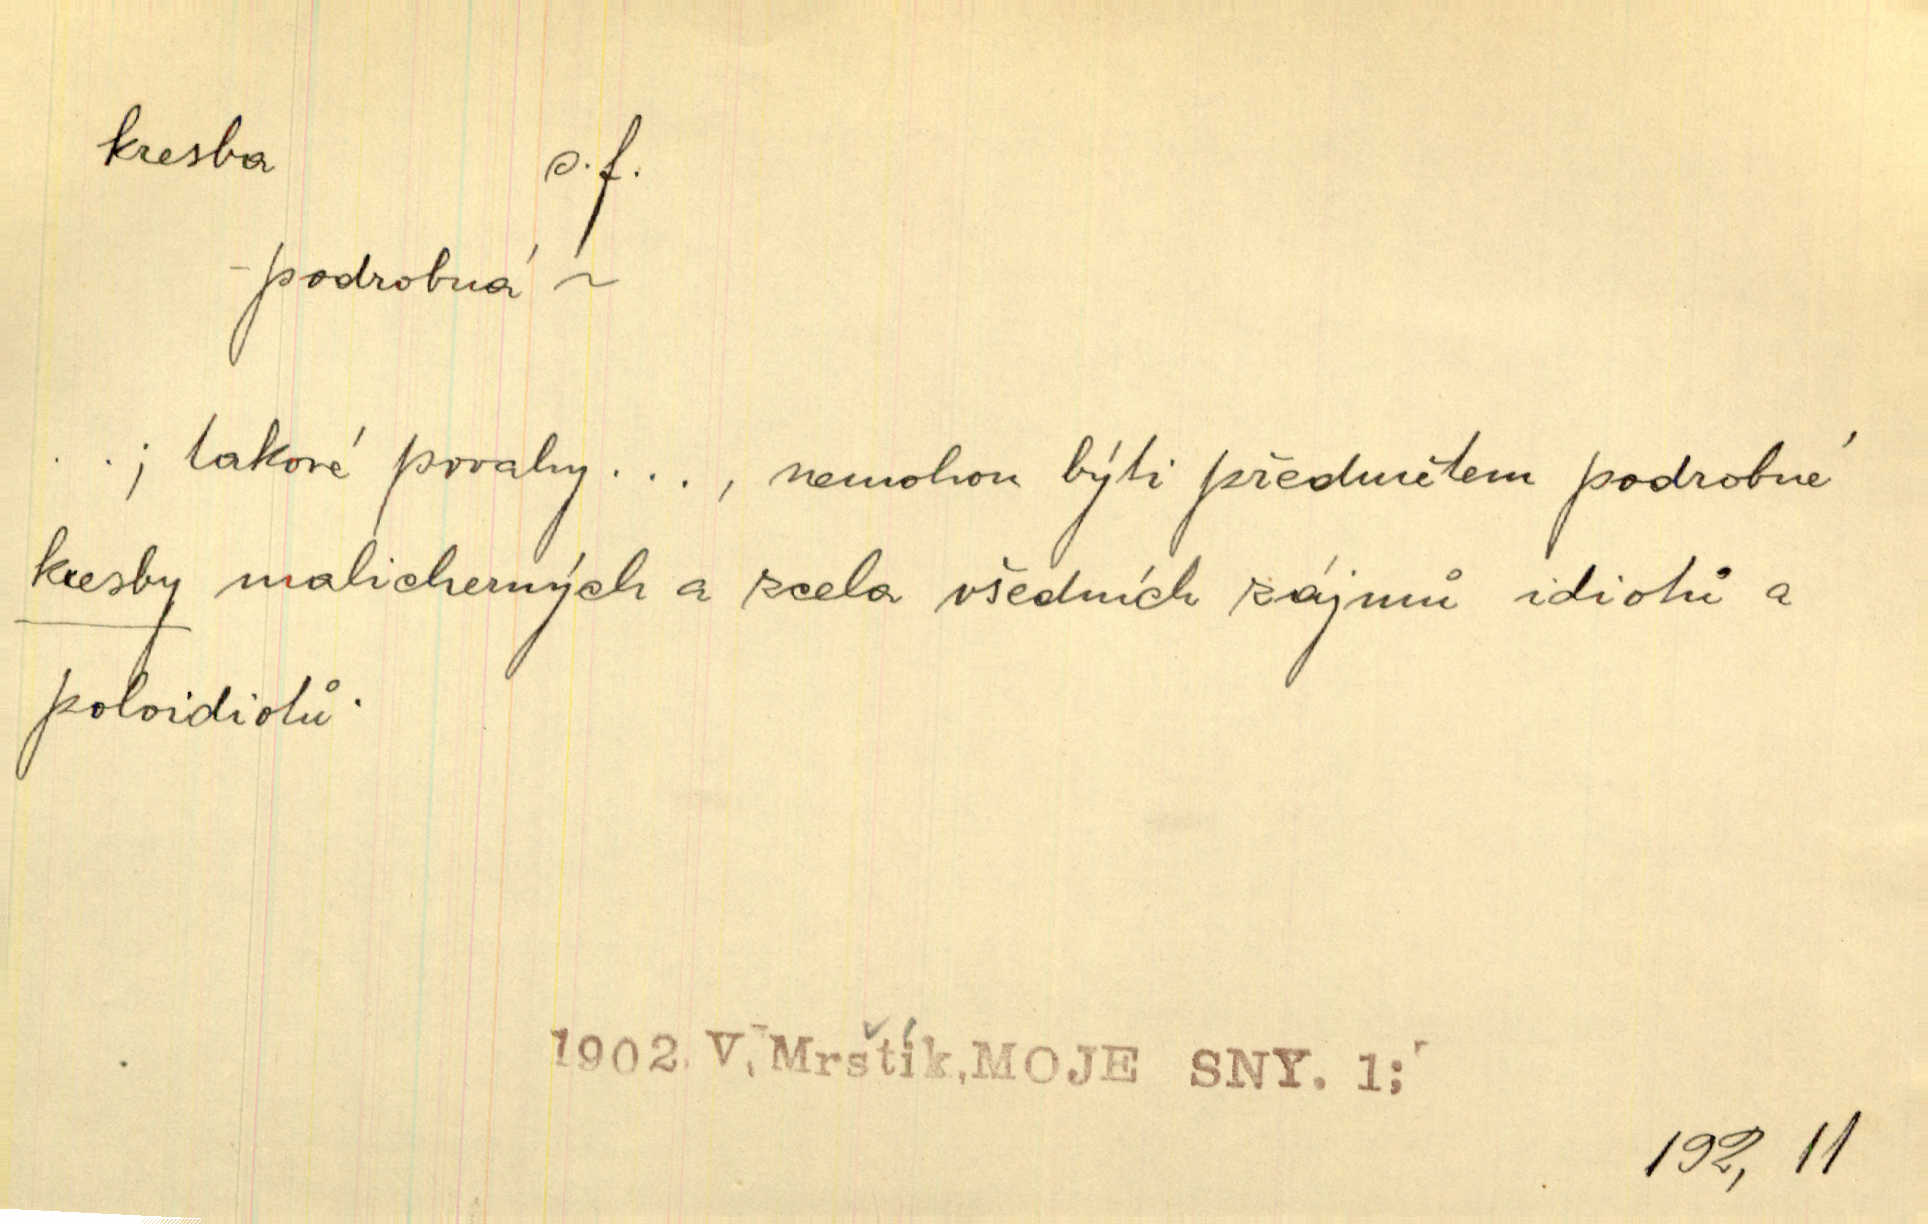 kresba s.f.
- podrobná ~
. . ; takové povahy . . . , nemohou býti předmětem podrobné
kresby malicherných a zcela všedních zájmů idiotů a
poloidiotů.
1902. V. Mrštík, MOJE SNY. 1;
192, 11